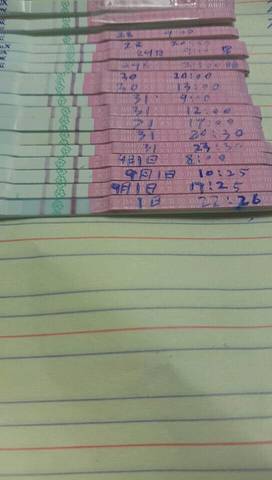 28 9:00
28 20:00
29日 9:00
30 20:00
30 13:00
31 9:00
31 12:00
31 17:00
31 20:30
31 23:30
9月1日 8:00
9月1日 10:25
9月1日 14:25
1日 22:26